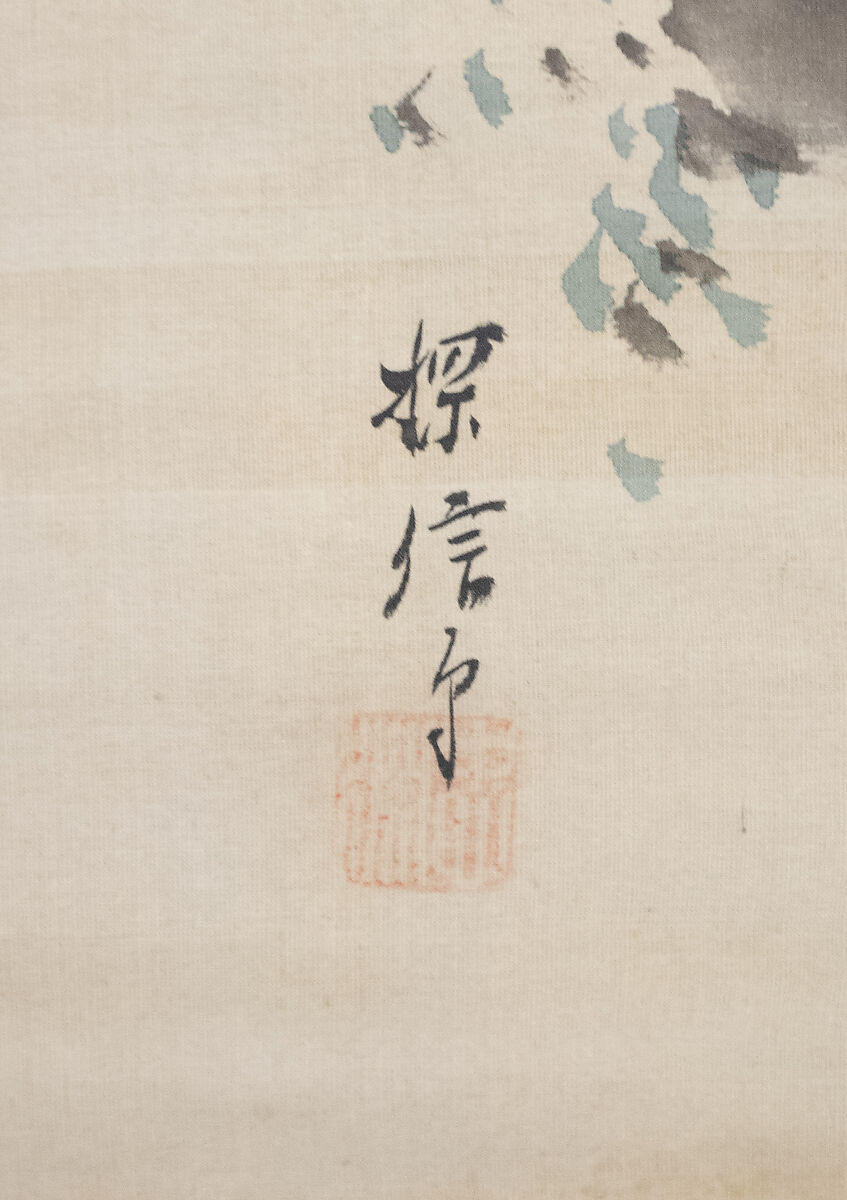 探信筆